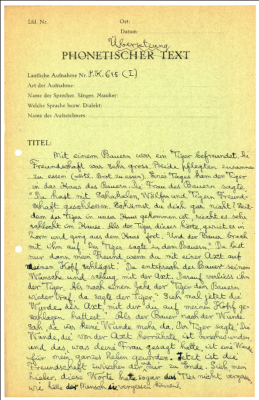 Lfd. Nr.
Ort:
Datum:
Übersetzung
PHONETISCHER TEXT
Lautliche Aufnahme Nr. P.K. 615 (I)
Art der Aufnahme:
Name der Sprecher, Sänger, Musiker:
Welche Sprache bezw. Dialekt:
Name des Aufzeichners:
TITEL:
Mit einem Bauern war ein Tiger befreundet. Die
Freundschaft war sehr gross. Beide pflegten zusamm
zu essen (wörtl. Brot zu essen). Eines Tages kam der Tiger
in das Haus des Bauern. Die Frau des Bauern sagte:
"Du hast mit Schakalen, Wölfen und Tigern Freund-
schaft geschlossen. Schämst du dich gar nicht? Seit-
dem der Tiger in unser Haus gekommen ist, riecht es sehr
schlecht im Hause. Als der Tiger dieses hörte, geriet es in
Zorn und ging aus dem Haus fort. Und der Bauer
mit ihm auf. Der Tiger sagte zu dem Bauern: "Du bist
nur dann mein Freund, wenn du mit einer Axt auf
meinen Kopf schlägst". Da entsprach der Bauer seinem
Wunsche und schlug mit der Axt. Darauf verliess ihn
der Tiger. Als nach einem Jahr der Tiger den Bauern
wieder traf, da sagte der Tiger: "Sieh mal jetzt die
Wunde, die Axt, mit der du auf meinen Kopf ge-
schlagen hattest". Als der Bauer nach der Wunde
sah, da war keine Wunde mehr da. Der Tiger sagte: "Die
Wunde, die von der Axt herrührte ist verschwunden
und das, was deine Frau gesagt hatte, ist eine Wunde
für mein ganzes Leben geworden. Jetzt ist die
Freundschaft zwischen dir und mir zu Ende. Sieh mein
Lieber, diese Worte hat sogar das Tier nicht vergessen,
wie sollte der Mensch sie vergessen können.